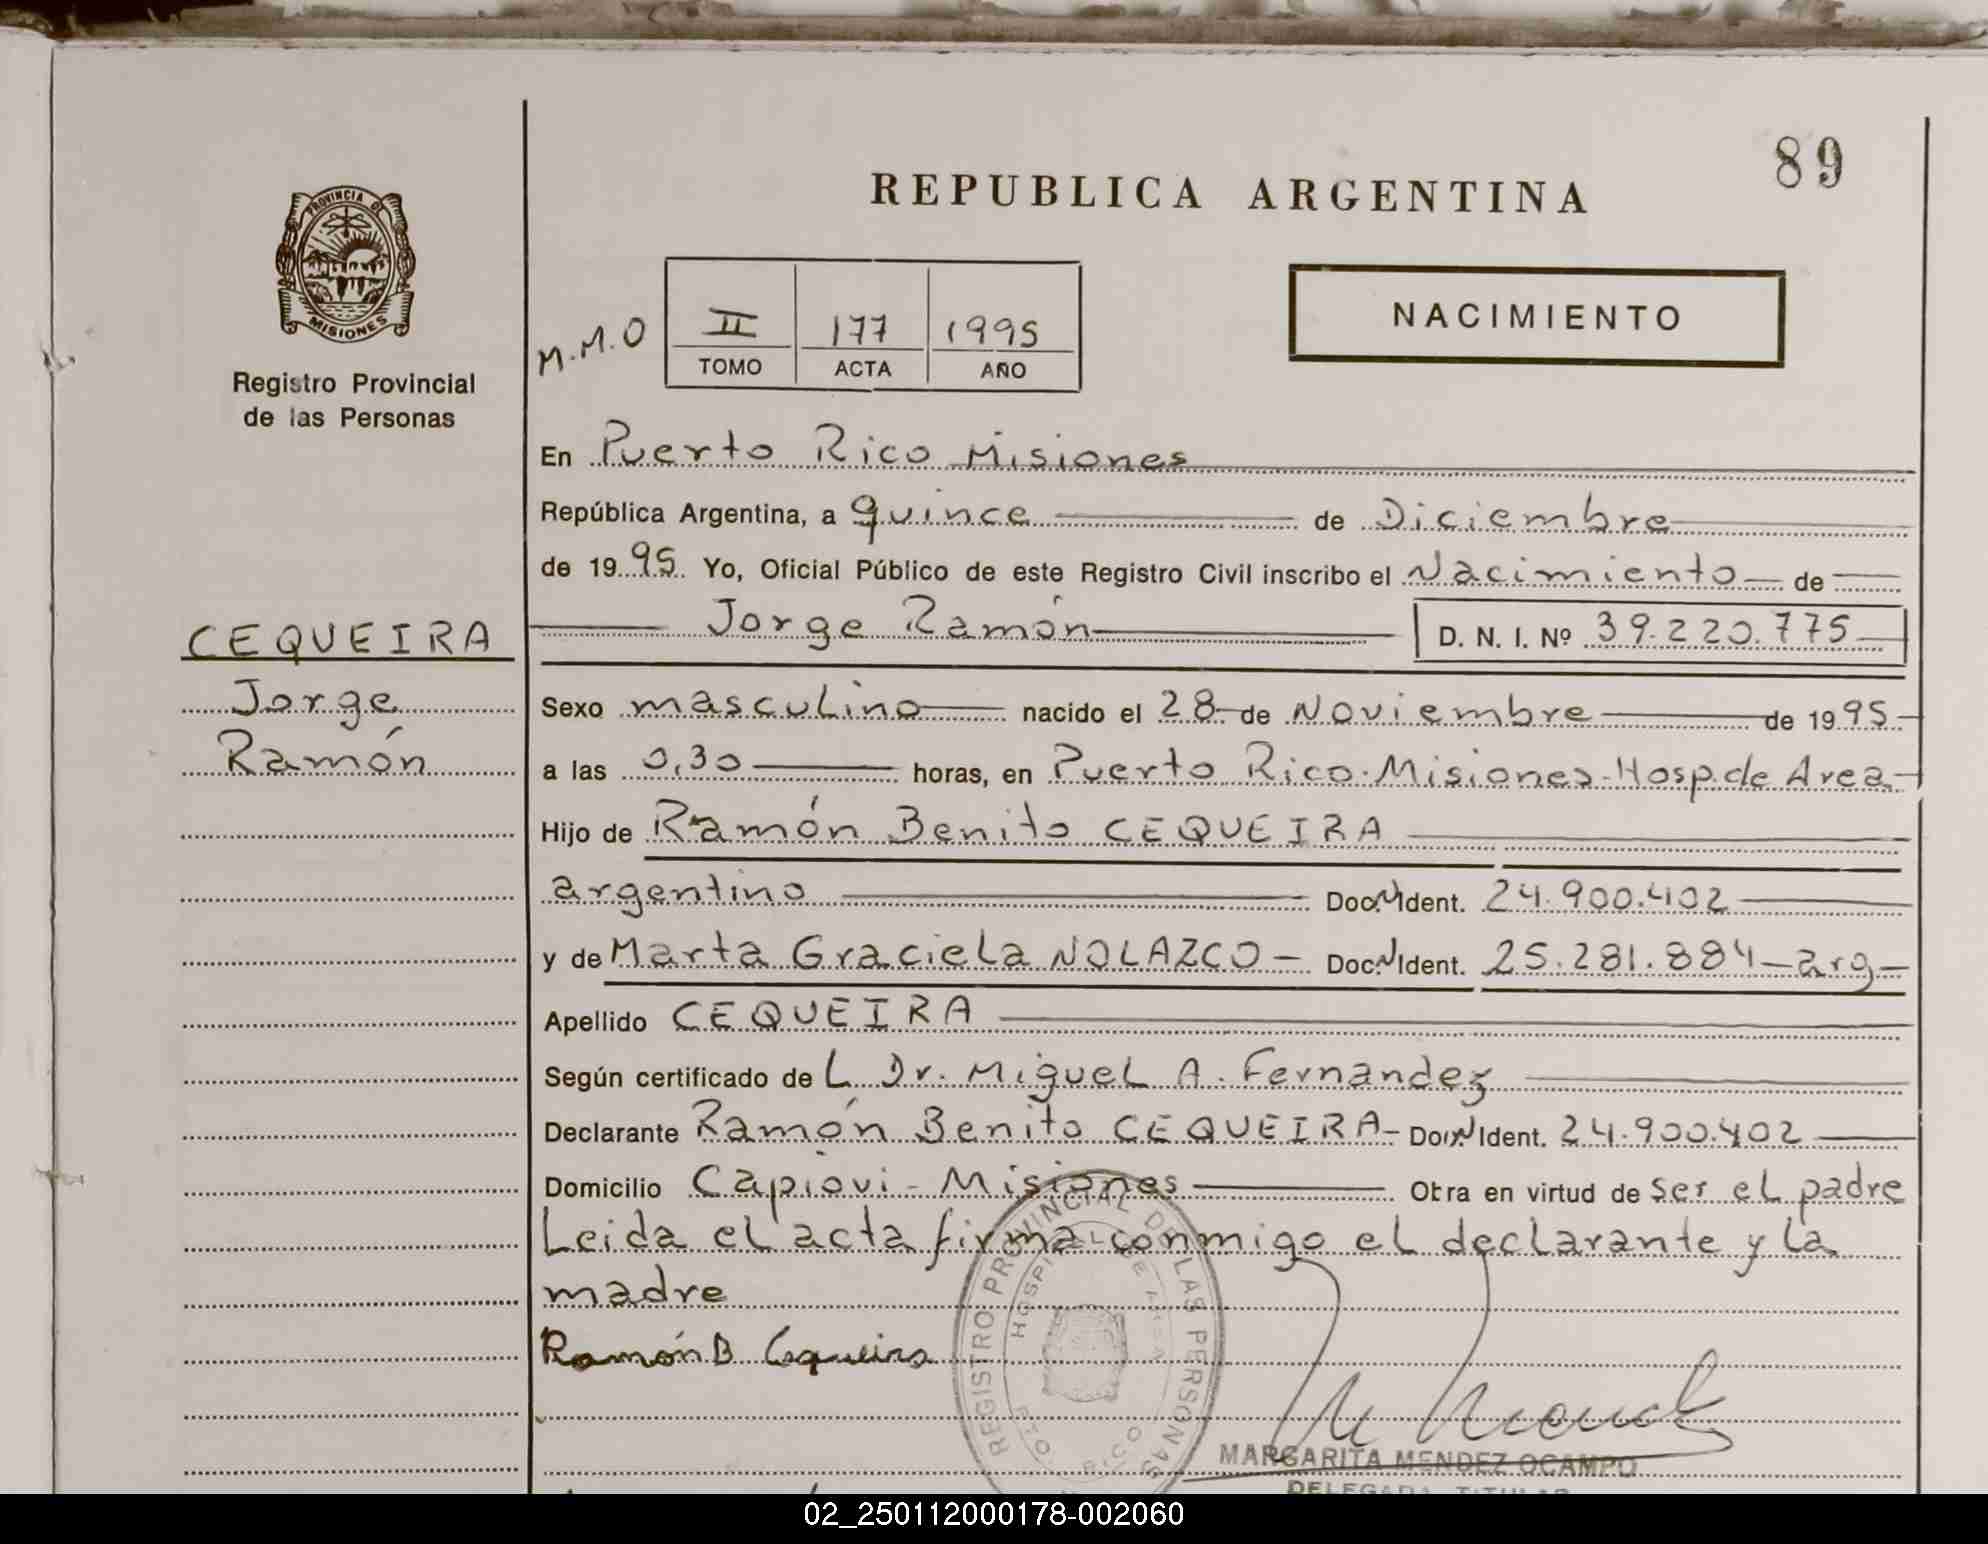 89
REPUBLICA ARGENTINA
PROVINCIA DE
MISIONES
Registro Provincial
de las Personas
M.M.O
II 177 1995
TOMO ACTA AÑO
NACIMIENTO
En Puerto Rico Misiones
República Argentina, a quince de Diciembre
de 1995 Yo, Oficial Público de este Registro Civil inscribo el Nacimiento de
Jorge Ramón D. N. I. Nº 39.220.775
CEQUEIRA
Jorge
Ramón
Sexo masculino nacido el 28 de Noviembre de 1995
a las 0,30 horas, en Puerto Rico-Misiones-Hosp.de Area
Hijo de Ramón Benito CEQUEIRA
argentino Doc.N Ident. 24.900.402
y de Marta Graciela NOLAZCO - Doc.N Ident. 25.281.884 - arg -
Apellido CEQUEIRA
Según certificado de L Dr. Miguel A. Fernandez
Declarante Ramón Benito CEQUEIRA - Doc.N Ident. 24.900.402
Domicilio Capiovi - Misiones Obra en virtud de ser el padre
Leida el acta firma conmigo el declarante y la
madre
Ramón B Cequeira
REGISTRO PROVINCIAL DE LAS PERSONAS
MARGARITA MENDEZ OCAMPO
DELEGADA TITULAR
02_250112000178-002060